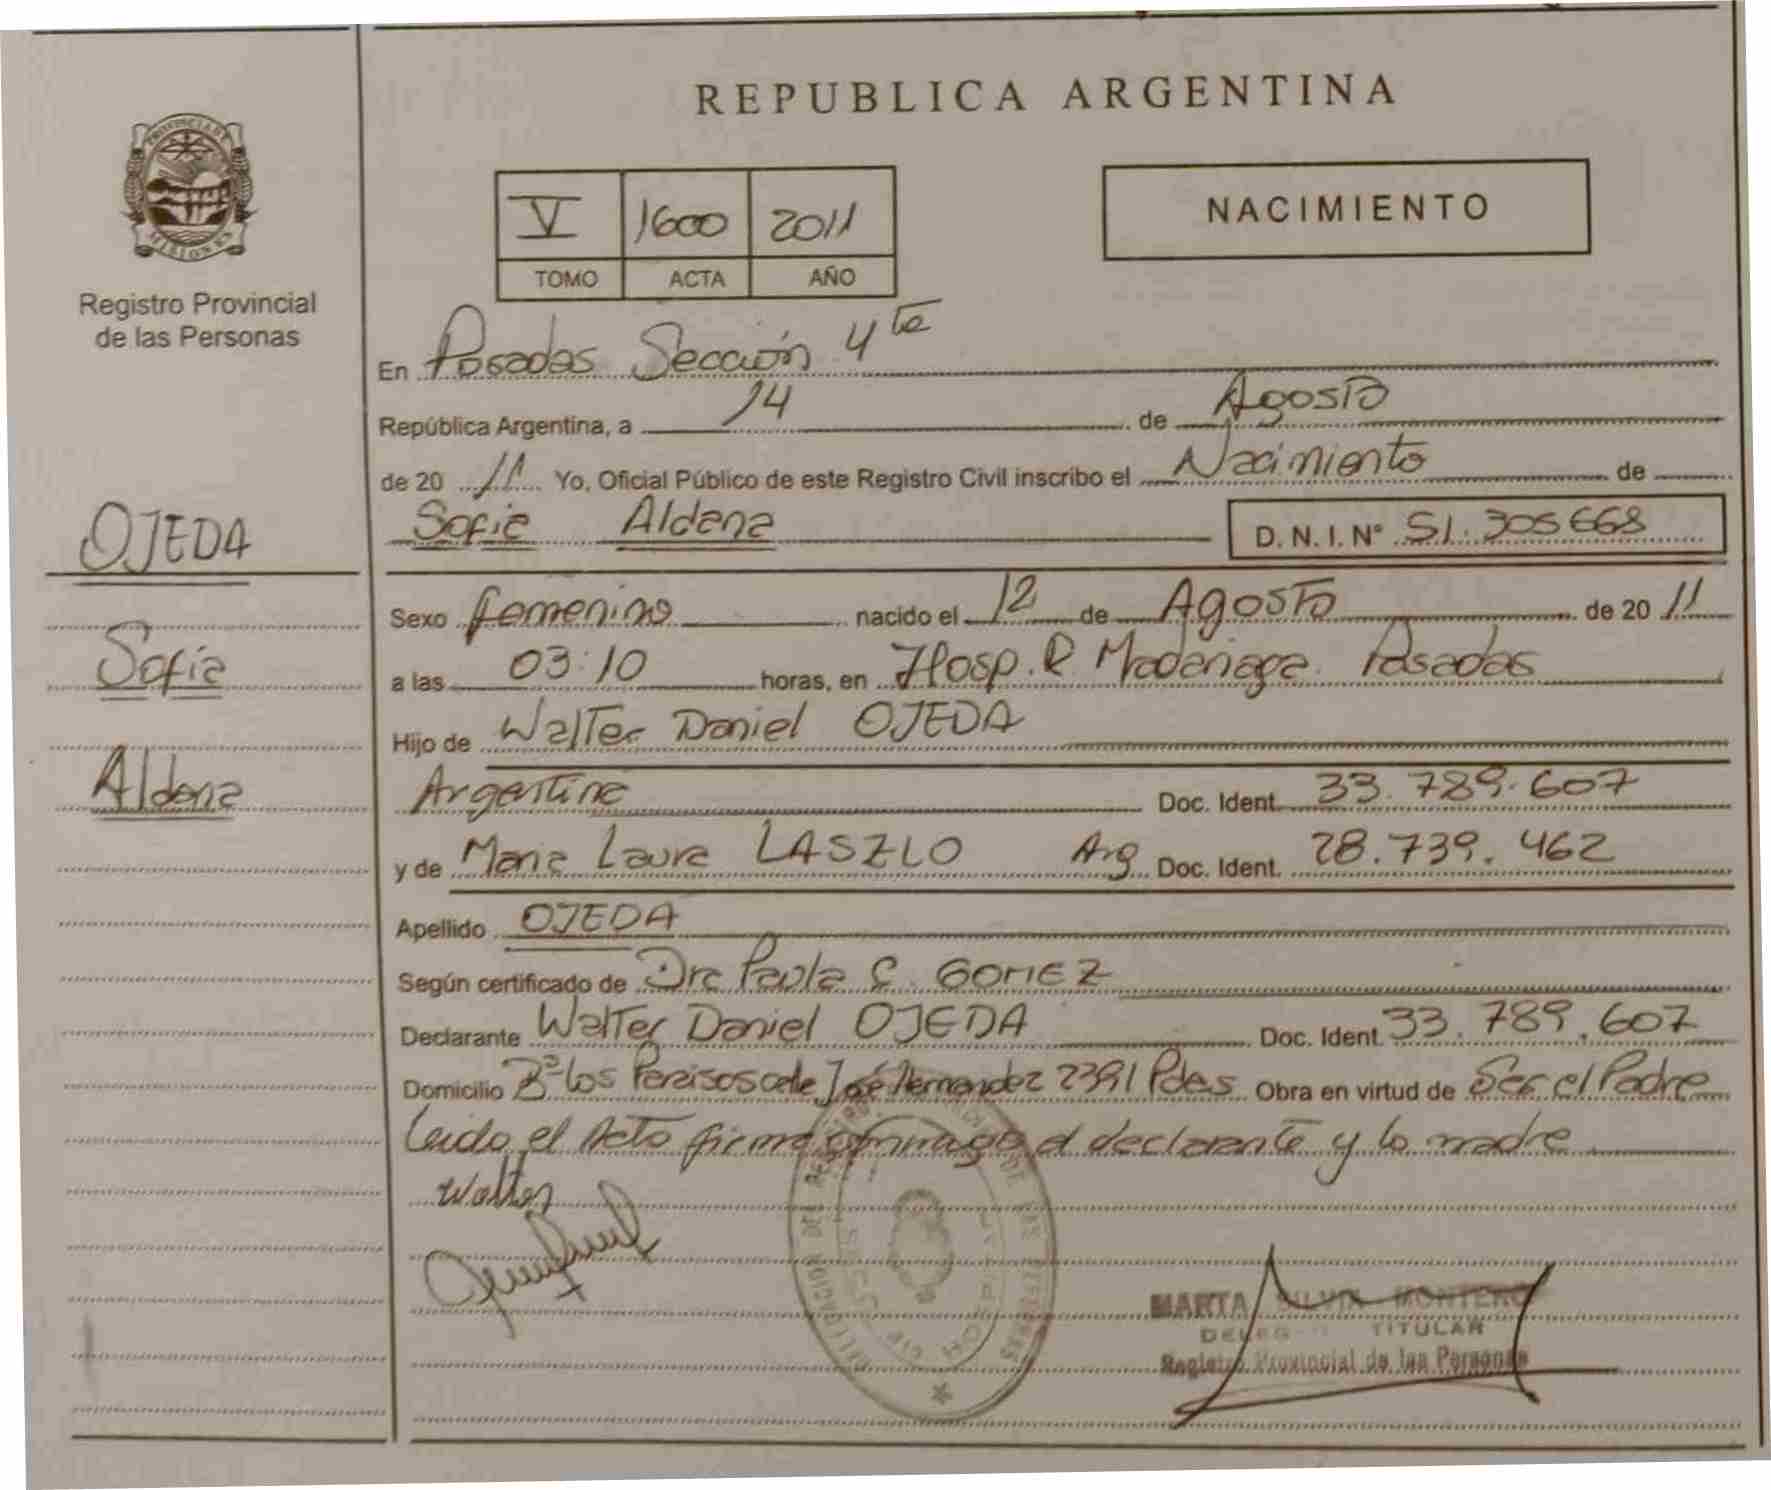 REPUBLICA ARGENTINA
PROVINCIA DE
MISIONES
Registro Provincial
de las Personas
V 1600 2011
TOMO ACTA AÑO
NACIMIENTO
En Posadas Sección 4ta
República Argentina, a 14 de Agosto
de 20 11 Yo, Oficial Público de este Registro Civil inscribo el Nacimiento de
Sofia Aldana D. N. I. N° 51.305668
OJEDA
Sofia
Aldana
Sexo femenino nacido el 12 de Agosto de 20 11
a las 03:10 horas, en Hosp. R Madariaga. Posadas
Hijo de Walter Daniel OJEDA
Argentina Doc. Ident. 33.789.607
y de Maria Laura LASZLO Arg Doc. Ident. 28.739.462
Apellido OJEDA
Según certificado de Dra Paola C. GOMEZ
Declarante Walter Daniel OJEDA Doc. Ident. 33.789.607
Domicilio Bº Los Paraisos calle José Hernandez 2391 Pdas Obra en virtud de Ser el Padre
Leido el Acto firma conmigo el declarante y la madre
Walter
MARTA SILVIA MONTERO
TITULAR
Registro Provincial de las Personas